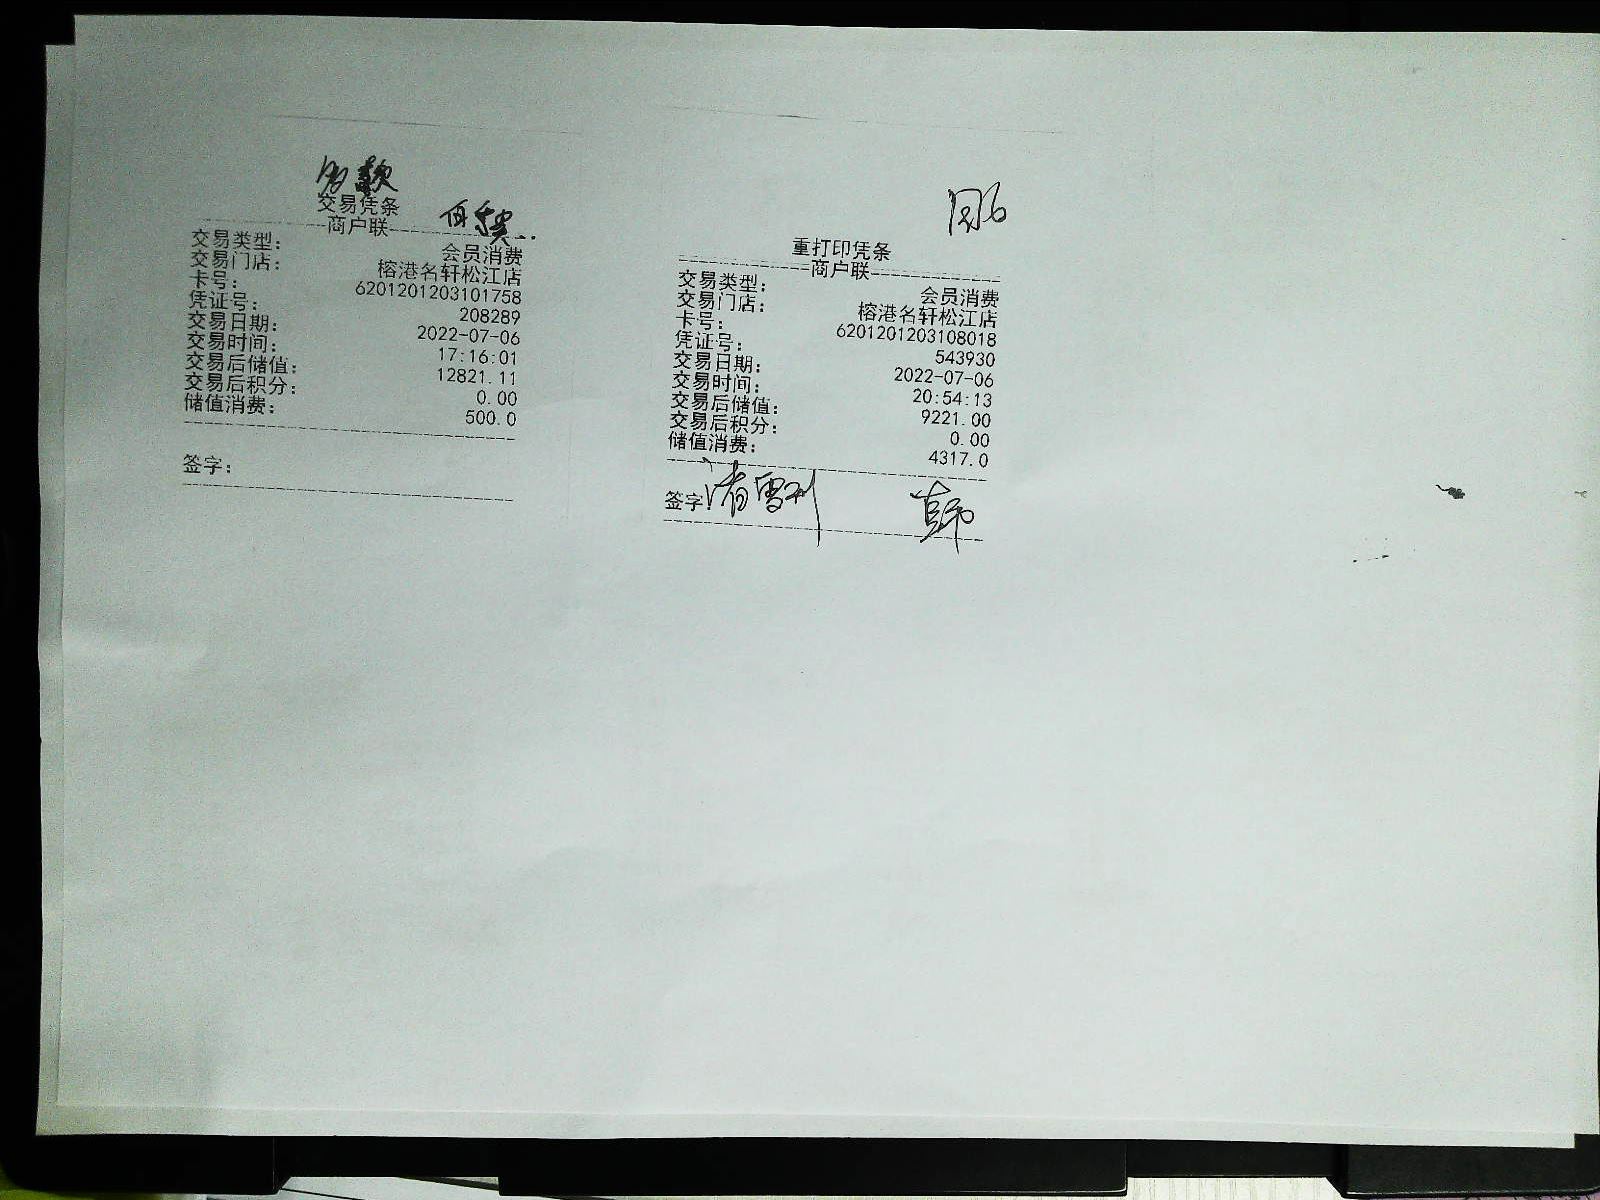 交易凭条
商户联
交易类型： 会员消费
交易门店： 榕港名轩松江店
卡号： 6201201203101758
凭证号： 208289
交易日期： 2022-07-06
交易时间： 17:16:01
交易后储值： 12821.11
交易后积分： 0.00
储值消费： 500.0
签字：
重打印凭条
商户联
交易类型： 会员消费
交易门店： 榕港名轩松江店
卡号： 6201201203108018
凭证号： 543930
交易日期： 2022-07-06
交易时间： 20:54:13
交易后储值： 9221.00
交易后积分： 0.00
储值消费： 4317.0
签字：